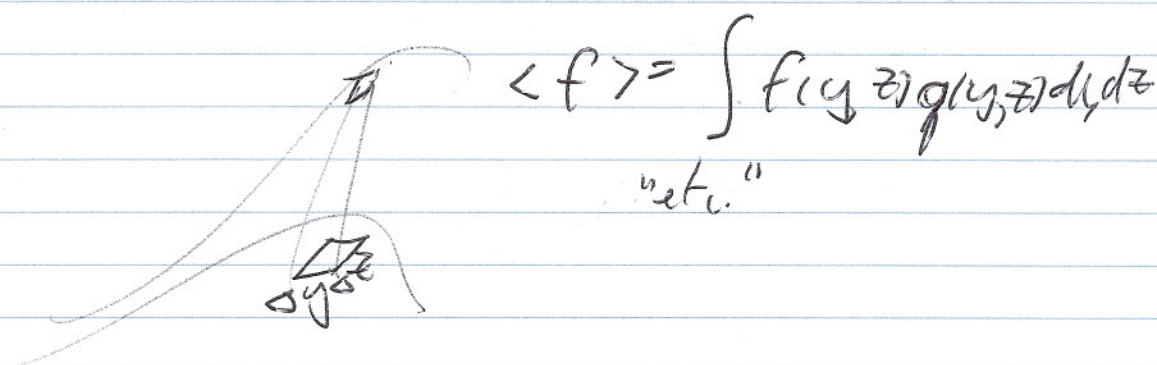 <f> = ∫ f(y, z) g(y, z) dy dz
"etc."
Δy Δz